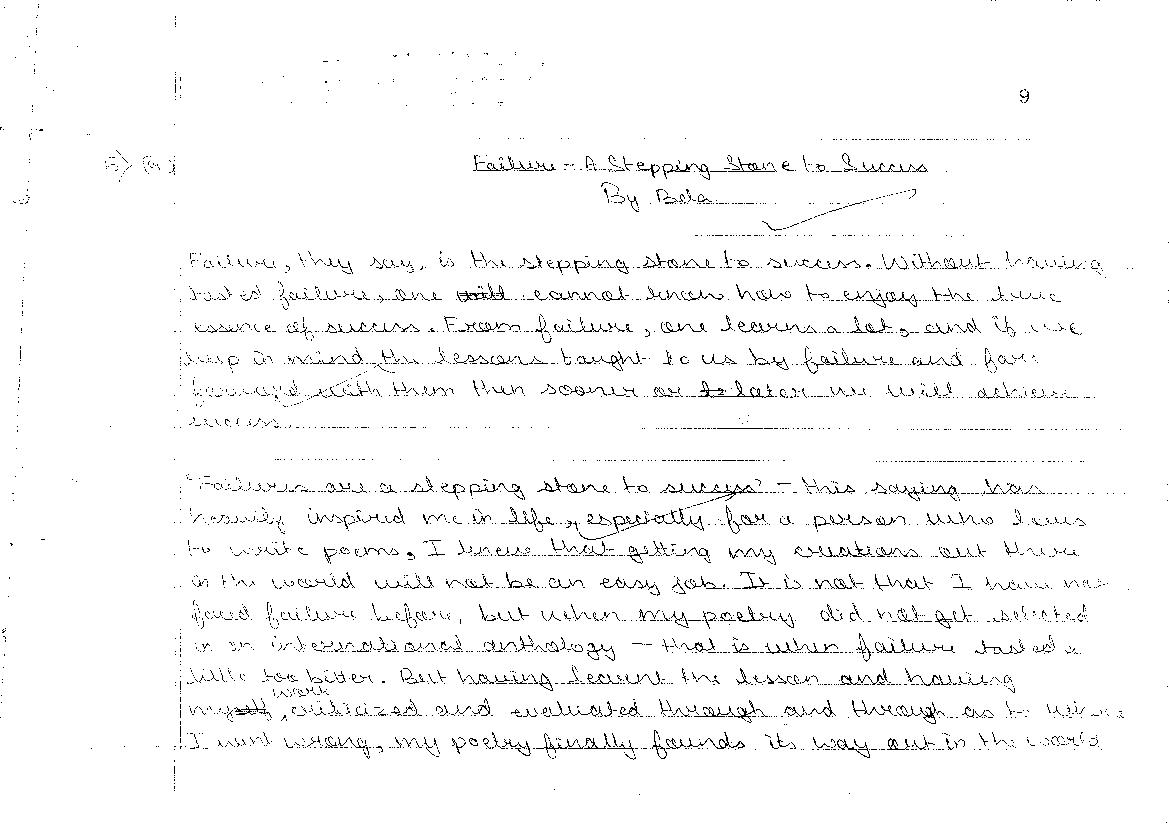 9
5) (a)
Failure - A Stepping Stone to Success
By Bela
Failure, they say, is the stepping stone to success. Without having
tasted failure, one will cannot know how to enjoy the true
essence of success. From failure, one learns a lot, and if we
keep in mind the lessons taught to us by failure and
forward with them then sooner or later we will achieve
success.
'Failures are a stepping stone to success' - this saying has
heavily inspired me in life, especially for a person who loves
to write poems. I knew that getting my creations out there
in the world will not be an easy job. It is not that I have not
faced failure before, but when my poetry did not get selected
in an international anthology - that is when failure tasted a
little too bitter. But having learnt the lesson and having
my work, criticized and evaluated through and through as to where
I went wrong, my poetry finally founds its way out in the world